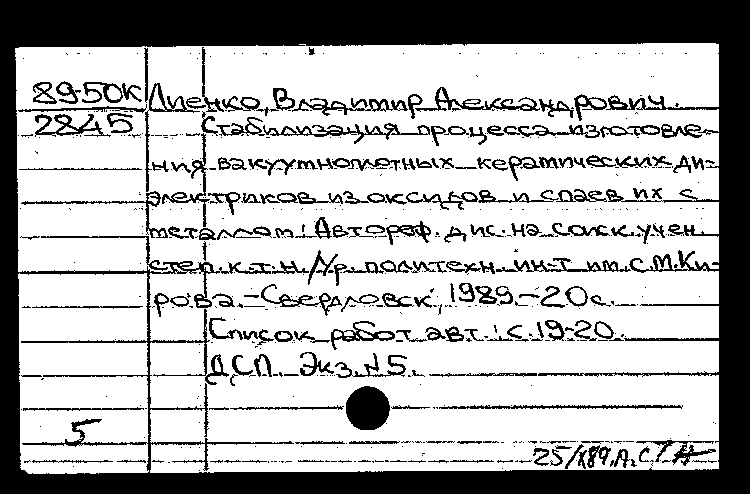 89-50К Лиенко, Владимир Александрович.
2845 Стабилизация процесса изготовле-
ния вакуумноплотных керамических ди-
электриков из оксидов и спаев их с
металлом: Автореф. дис. на соиск. учен.
степ. к.т.н. /Ур. политехн. ин-т им. С.М. Ки-
рова. - Свердловск, 1989. - 20 с.
Список работ авт.: с. 19-20.
ДСП. Экз. N 5.
5